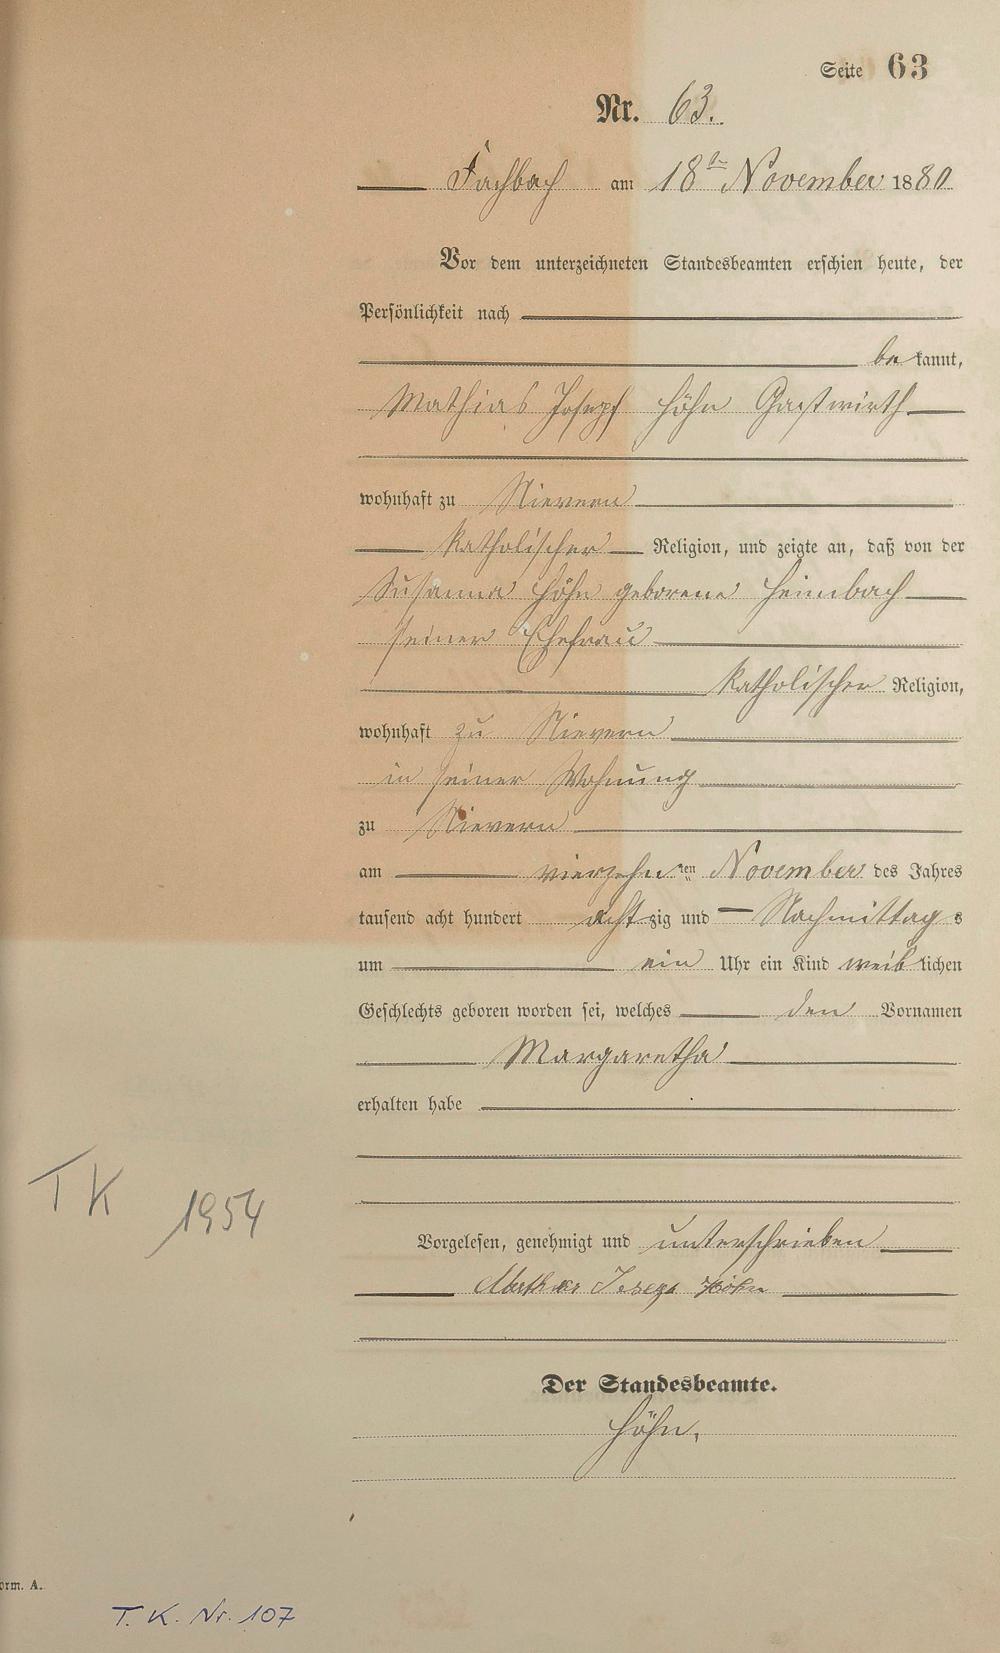 Seite 63
Nr. 63.
Fachbach am 18ten November 1880
Vor dem unterzeichneten Standesbeamten erschien heute, der
Persönlichkeit nach
bekannt,
Mathias Joseph Höhn Gastwirth
wohnhaft zu Nievern
katholischer Religion, und zeigte an, daß von der
Susanna Höhn geborene Heimbach
seiner Ehefrau
katholischer Religion,
wohnhaft zu Nievern
in seiner Wohnung
zu Nievern
am vierzehnten November des Jahres
tausend acht hundert achtzig und Nachmittags
um ein Uhr ein Kind weiblichen
Geschlechts geboren worden sei, welches den Vornamen
Margaretha
erhalten habe
TK 1954
Vorgelesen, genehmigt und unterschrieben
Mathias Joseph Höhn
Der Standesbeamte.
Höhn.
orm. A.
T. K. Nr. 107